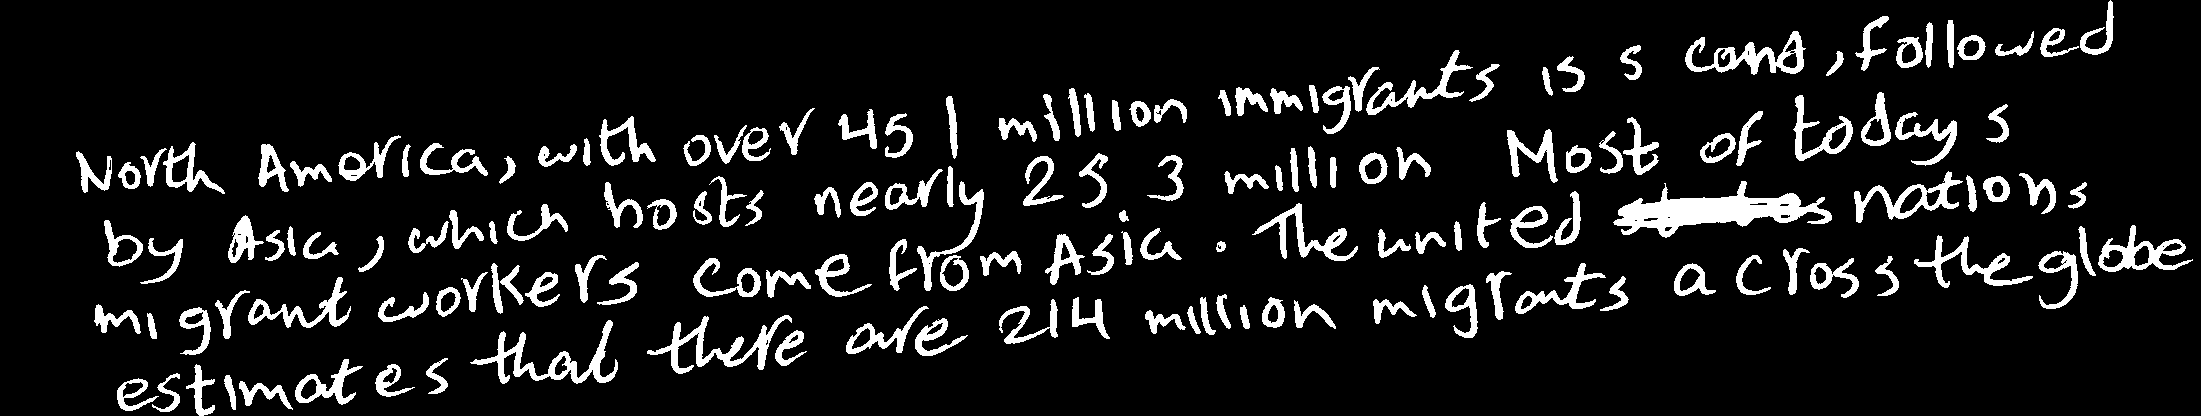 North America, with over 45 1 million immigrants is s cond, followed
by Asia, which hosts nearly 25 3 million Most of today s
migrant workers come from Asia. The united nations
estimates that there are 214 million migrants across the globe